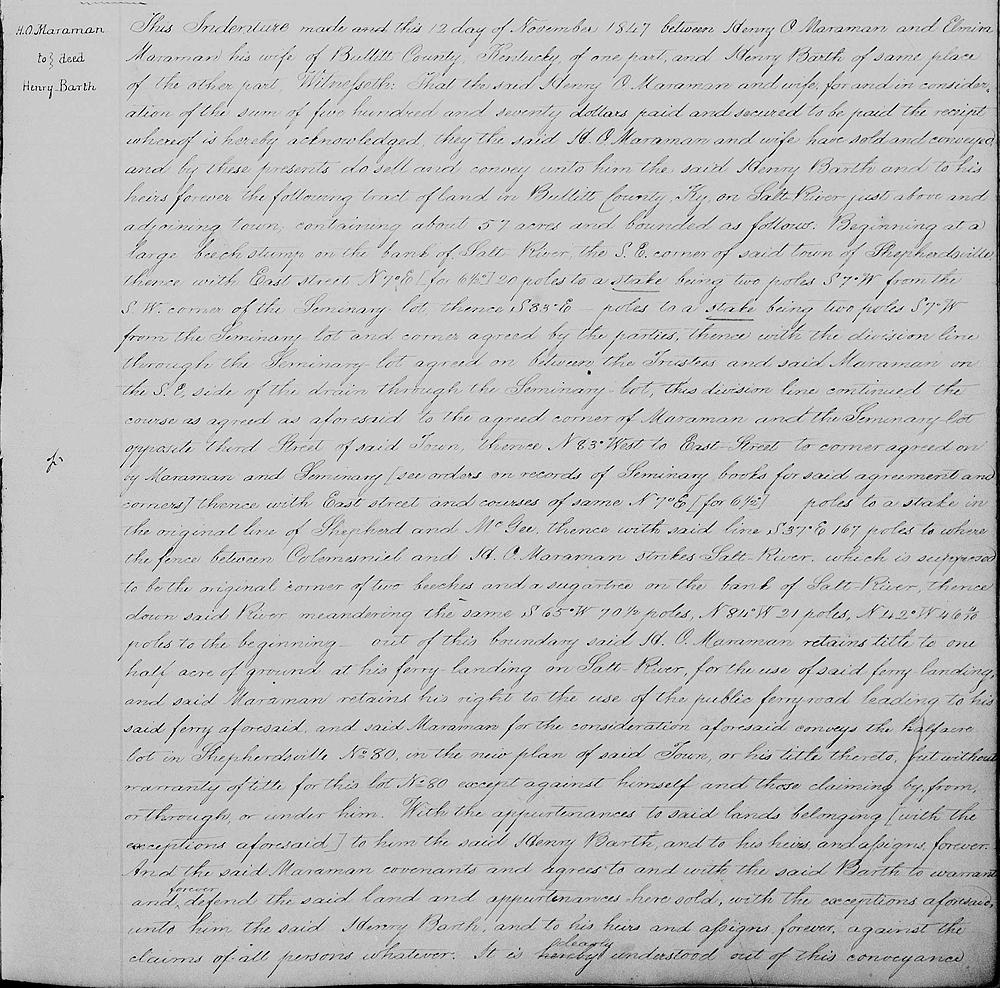 H. O. Maraman
to } deed
Henry Barth
This Indenture made and this 12 day of November 1847 between Henry O Maraman and Elmira
Maraman his wife of Bullitt County, Kentucky, of one part, and Henry Barth of same place
of the other part, Witnesseth: That the said Henry O. Maraman and wife, for and in consider,
ation of the sum of five hundred and seventy dollars paid and secured to be paid the receipt
whereof is hereby acknowledged, they the said H. O. Maraman and wife have sold and conveyed,
and by these presents do sell and convey unto him the said Henry Barth and to his
heirs forever the following tract of land in Bullitt County, Ky, on Salt River just above and
adjoining town, containing about 57 acres and bounded as follow. Beginning at a
large beech stump on the bank of Salt River, the S. E. corner of said town of Shepherdsville
thence with East street N 7° E [for 6½°] 20 poles to a stake being two poles S 7° W from the
S. W. corner of the Seminary lot, thence S 83° E — poles to a stake being two poles S 7° W
from the Seminary lot and corner agreed by the parties, thence with the division line
through the Seminary lot agreed on between the Trustees and said Maraman on
the S. E. side of the drain through the Seminary lot, this division line continued the
course as agreed as aforesaid to the agreed corner of Maraman and the Seminary lot
opposite third Street of said Town, thence N 83° West to East Street to corner agreed on
by Maraman and Seminary [see orders on records of Seminary books for said agreement and
corners] thence with East street and courses of same N 7° E [for 6½] poles to a stake in
the original line of Shepherd and McGee, thence with said line S 37° E 167 poles to where
the fence between Colemesniel and H. O. Maraman strikes Salt River, which is supposed
to be the original corner of two beeches and a sugartree on the bank of Salt River, thence
down said River meandering the same S 65° W 70½ poles, N 84° W 21 poles, N 42° W 46
poles to the beginning — out of this boundary said H. O. Maraman retains title to one
half acre of ground at his ferry landing on Salt River, for the use of said ferry landing,
and said Maraman retains his right to the use of the public ferry road leading to his
said ferry aforesaid, and said Maraman for the consideration aforesaid conveys the half acre
lot in Shepherdsville No 80, in the new plan of said Town, or his title thereto, but without
warranty of title for this lot No 80 except against himself and those claiming by, from,
or through, or under him. With the appurtenances to said lands belonging [with the
exceptions aforesaid] to him the said Henry Barth, and to his heirs, and assigns, forever.
And the said Maraman covenants and agrees to and with the said Barth to warrant
forever
and defend the said land and appurtenances here sold, with the exceptions aforesaid,
unto him the said Henry Barth, and to his heirs and assigns, forever, against the
clearly
claims of all persons whatever. It is hereby understood out of this conveyance